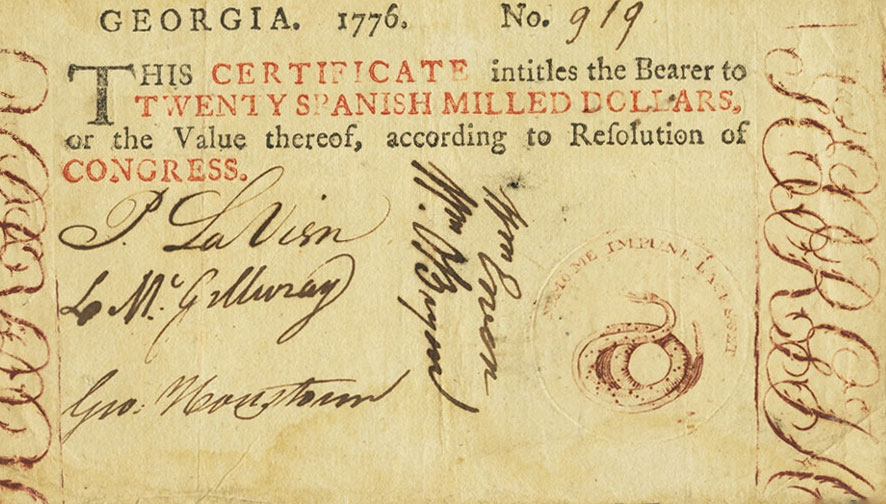 GEORGIA. 1776. No. 919
THIS CERTIFICATE intitles the Bearer to
TWENTY SPANISH MILLED DOLLARS,
or the Value thereof, according to Reſolution of
CONGRESS.
P. LaVien
L McGillivray
Geo: Houstoun
Wm
Wm
NEMO ME IMPUNE LACESSET